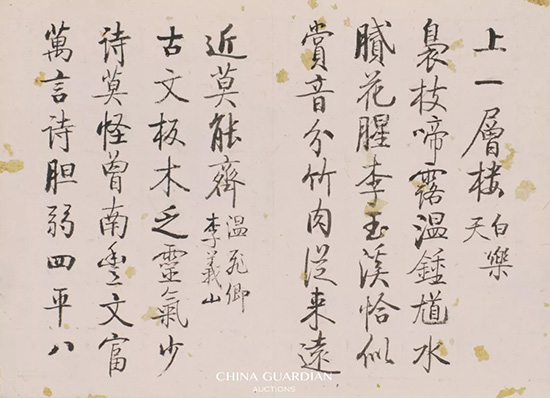 上一層楼 白樂天
裊枝啼露温鍾馗水
膩花腥李玉溪恰似
賞音分竹肉從来遠
近莫能齊 温飛卿李義山
古文板木乏靈氣少
诗莫怪曾南豊文富
萬言诗胆弱四平八
CHINA GUARDIAN
AUCTIONS